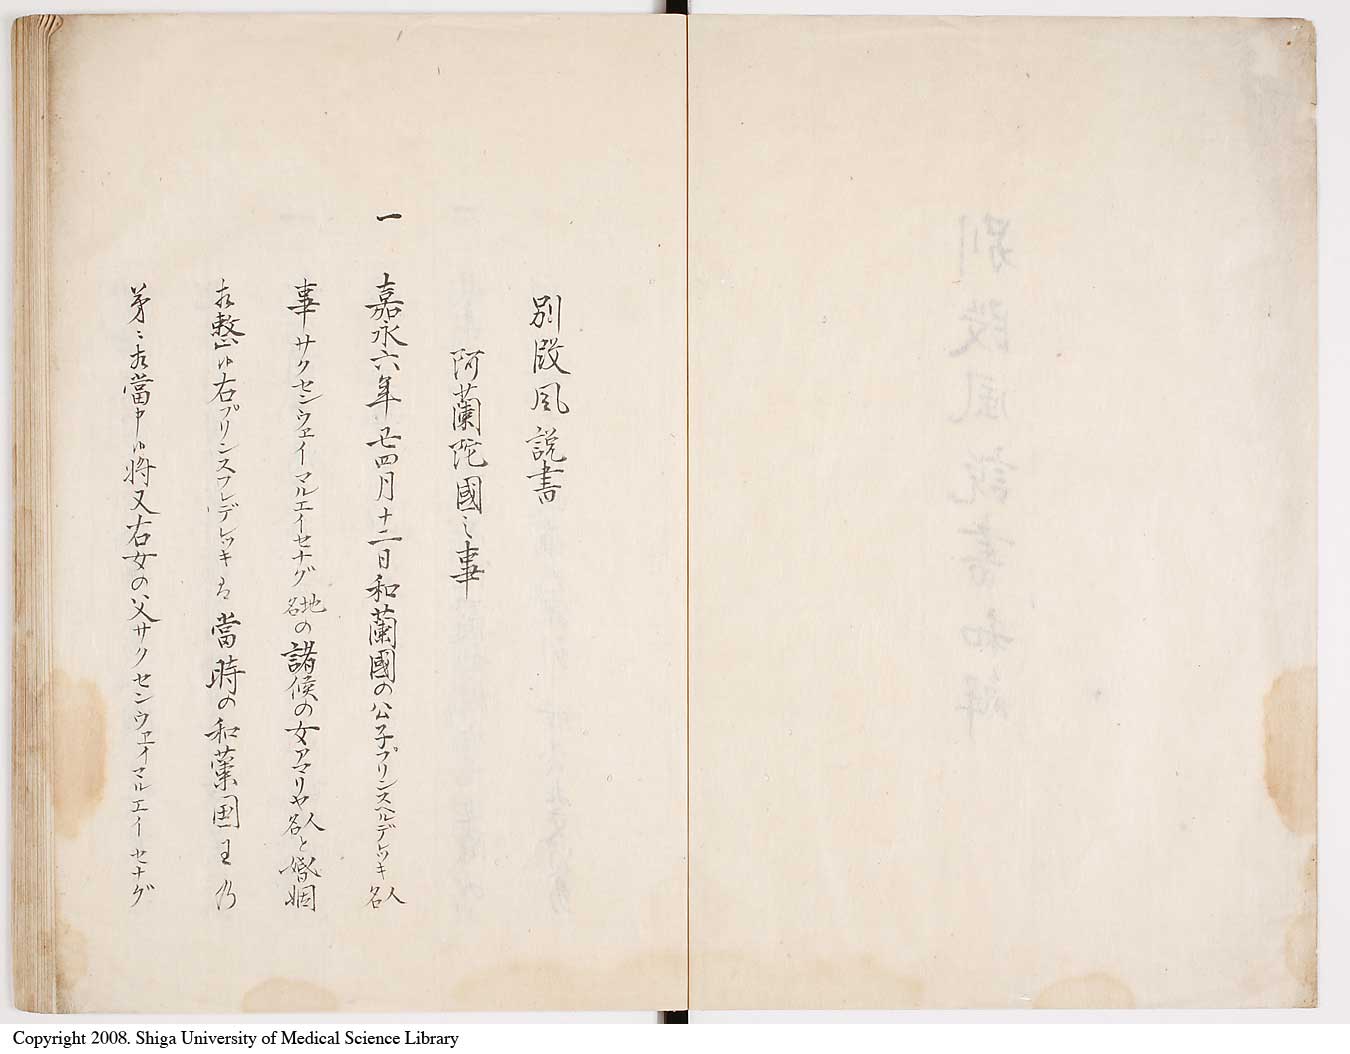 別段風説書
阿蘭陀國之事
一 嘉永六年丑四月十二日和蘭國の公子プリンスヘルデレッキ人名
事サクセンウェイマルエイセナグ地名の諸侯の女アマリヤ人名と婚姻
相整ひ候右プリンスフレデレッキは當時の和蘭国王乃
弟ニ相當申候将又右女の父サクセンウェイマルエイセナグ
Copyright 2008. Shiga University of Medical Science Library